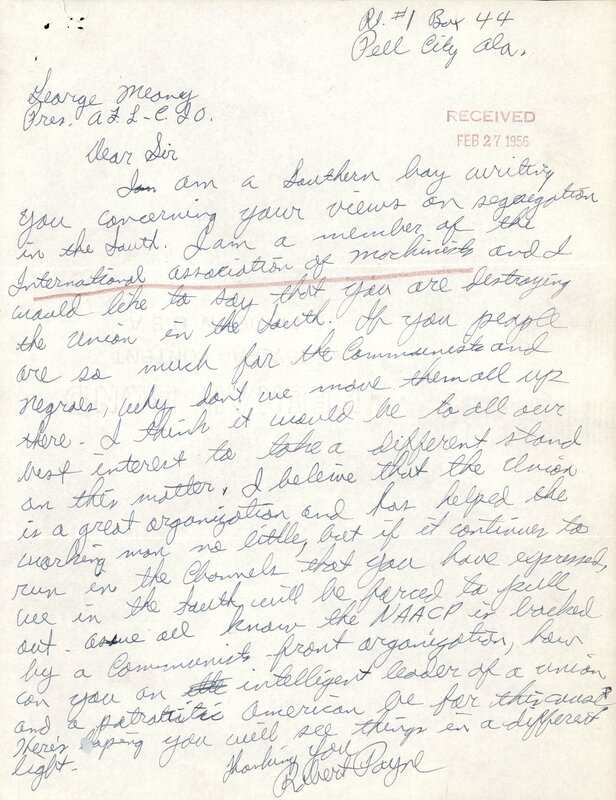 Rt. #1 Box 44
Pell City Ala.
George Meany
Pres. A.F.L-C.I.O.
RECEIVED
FEB 27 1956
Dear Sir
I am a Southern boy writing
you concerning your views on segregation
in the South. I am a member of the
International association of machinists and I
would like to say that you are destroying
the Union in the South. If you people
are so much for the Communists and
Negroes, why don't we move them all up
there. I think it would be to all our
best interest to take a different stand
on this matter. I beleive that the Union
is a great organization and has helped the
working man no little, but if it continues to
run in the Channels that you have expressed,
we in the South will be forced to pull
out. as we all know the NAACP is backed
by a Communist front organization, how
can you an intelligent leader of a union
and a patriotic American be for this cause?
Here's hoping you will see things in a different
light.
Thanking you
Robert Payne